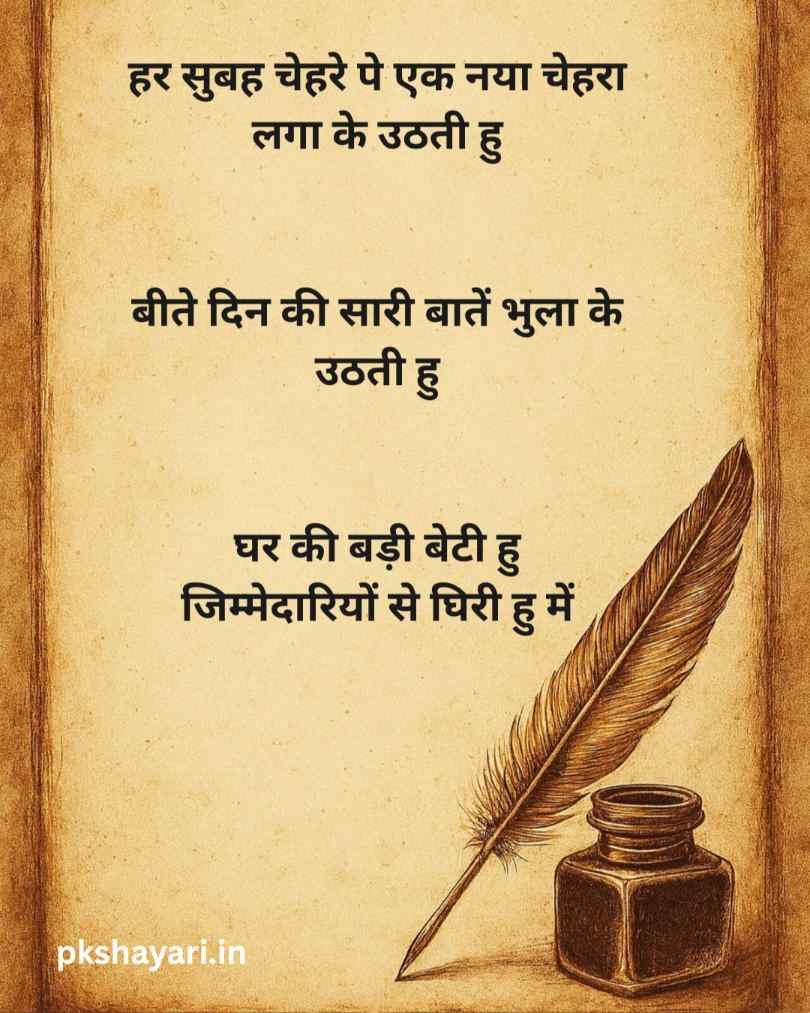 हर सुबह चेहरे पे एक नया चेहरा
लगा के उठती हु
बीते दिन की सारी बातें भुला के
उठती हु
घर की बड़ी बेटी हु
जिम्मेदारियों से घिरी हु में
pkshayari.in